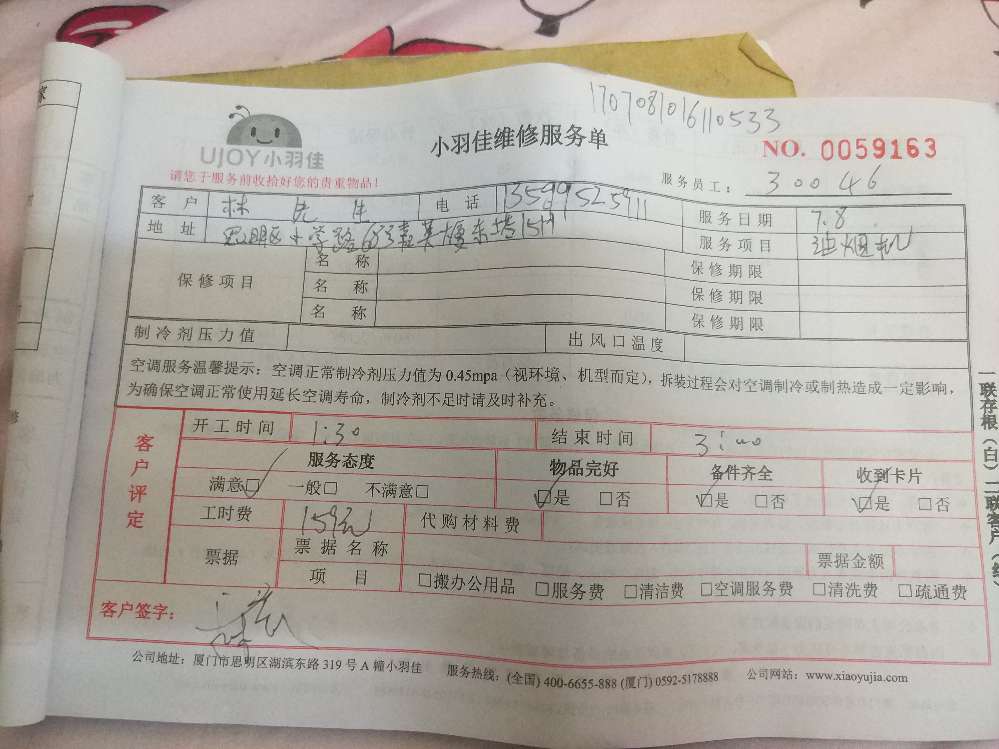 1707081016110533
UJOY小羽佳
小羽佳维修服务单
NO. 0059163
请您于服务前收拾好您的贵重物品!
服务员工: 30046
客户 林先生 电话 13599525911 服务日期 7.8
地址 思明区小学路 嘉英楼东塔15H 服务项目 油烟机
保修项目 名称 保修期限
名称 保修期限
名称 保修期限
制冷剂压力值 出风口温度
空调服务温馨提示:空调正常制冷剂压力值为 0.45mpa(视环境、机型而定),拆装过程会对空调制冷或制热造成一定影响,
为确保空调正常使用延长空调寿命,制冷剂不足时请及时补充。
客户评定
开工时间 1:30 结束时间 3:00
服务态度 物品完好 备件齐全 收到卡片
满意☑ 一般□ 不满意□ ☑是 □否 ☑是 □否 ☑是 □否
工时费 159元 代购材料费
票据 票据名称 票据金额
项目 □搬办公用品 □服务费 □清洁费 □空调服务费 □清洗费 □疏通费
客户签字:
公司地址:厦门市思明区湖滨东路 319 号 A 幢小羽佳 服务热线:(全国) 400-6655-888 (厦门) 0592-5178888 公司网站:www.xiaoyujia.com
一联存根(白)二联客户(红)
家